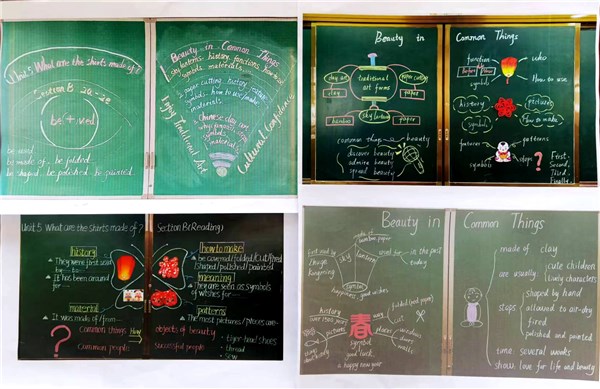 Unit5 What are the shirts made of?
Section B 2a-2e
be + ved
be used
be made of be folded
be shaped be polished be painted
Beauty in Common Things
sky lanterns history, functions, how to use
symbols materials
paper cutting history
materials
Chinese clay art
materials
Enjoy Traditional Art
Cultural Confidence
Beauty in
clay art
paper cutting
traditional
art forms
clay
paper
sky lantern
bamboo
paper
common things → beauty
discover beauty
admire beauty
spread beauty
Common Things
function
Before Now
symbols
who
How to use
history
pictures
symbols
How to make
features
patterns
symbols
steps
?
First,
Second,
Third
Finally
Unit 5 What are the shirts made of?
Section B(Reading)
history
They were first used
by
It has been around
for
material
It was made of/from
?
Common things How objects of beauty
Common people Successful people
how to make
be covered/folded/cut/fired
shaped/polished/painted
meaning
They are seen as symbols
of wishes for
patterns
The most pictures/pieces are
tiger-head/shoes
thread
sew
Beauty in
made of
bamboo, paper
first used by
Zhuge
Kongming
sky lantern
used for
in the past
today
symbol
happiness, good wishes
history
pictures
春
folded (red paper)
cut
put
places
windows
doors
walls
symbol
good luck
a happy new year
Common Things
made of clay
are usually
cute children
lively characters
steps
shaped by hand
allowed to air-dry
fired
polished and painted
time several weeks
show love for life and beauty